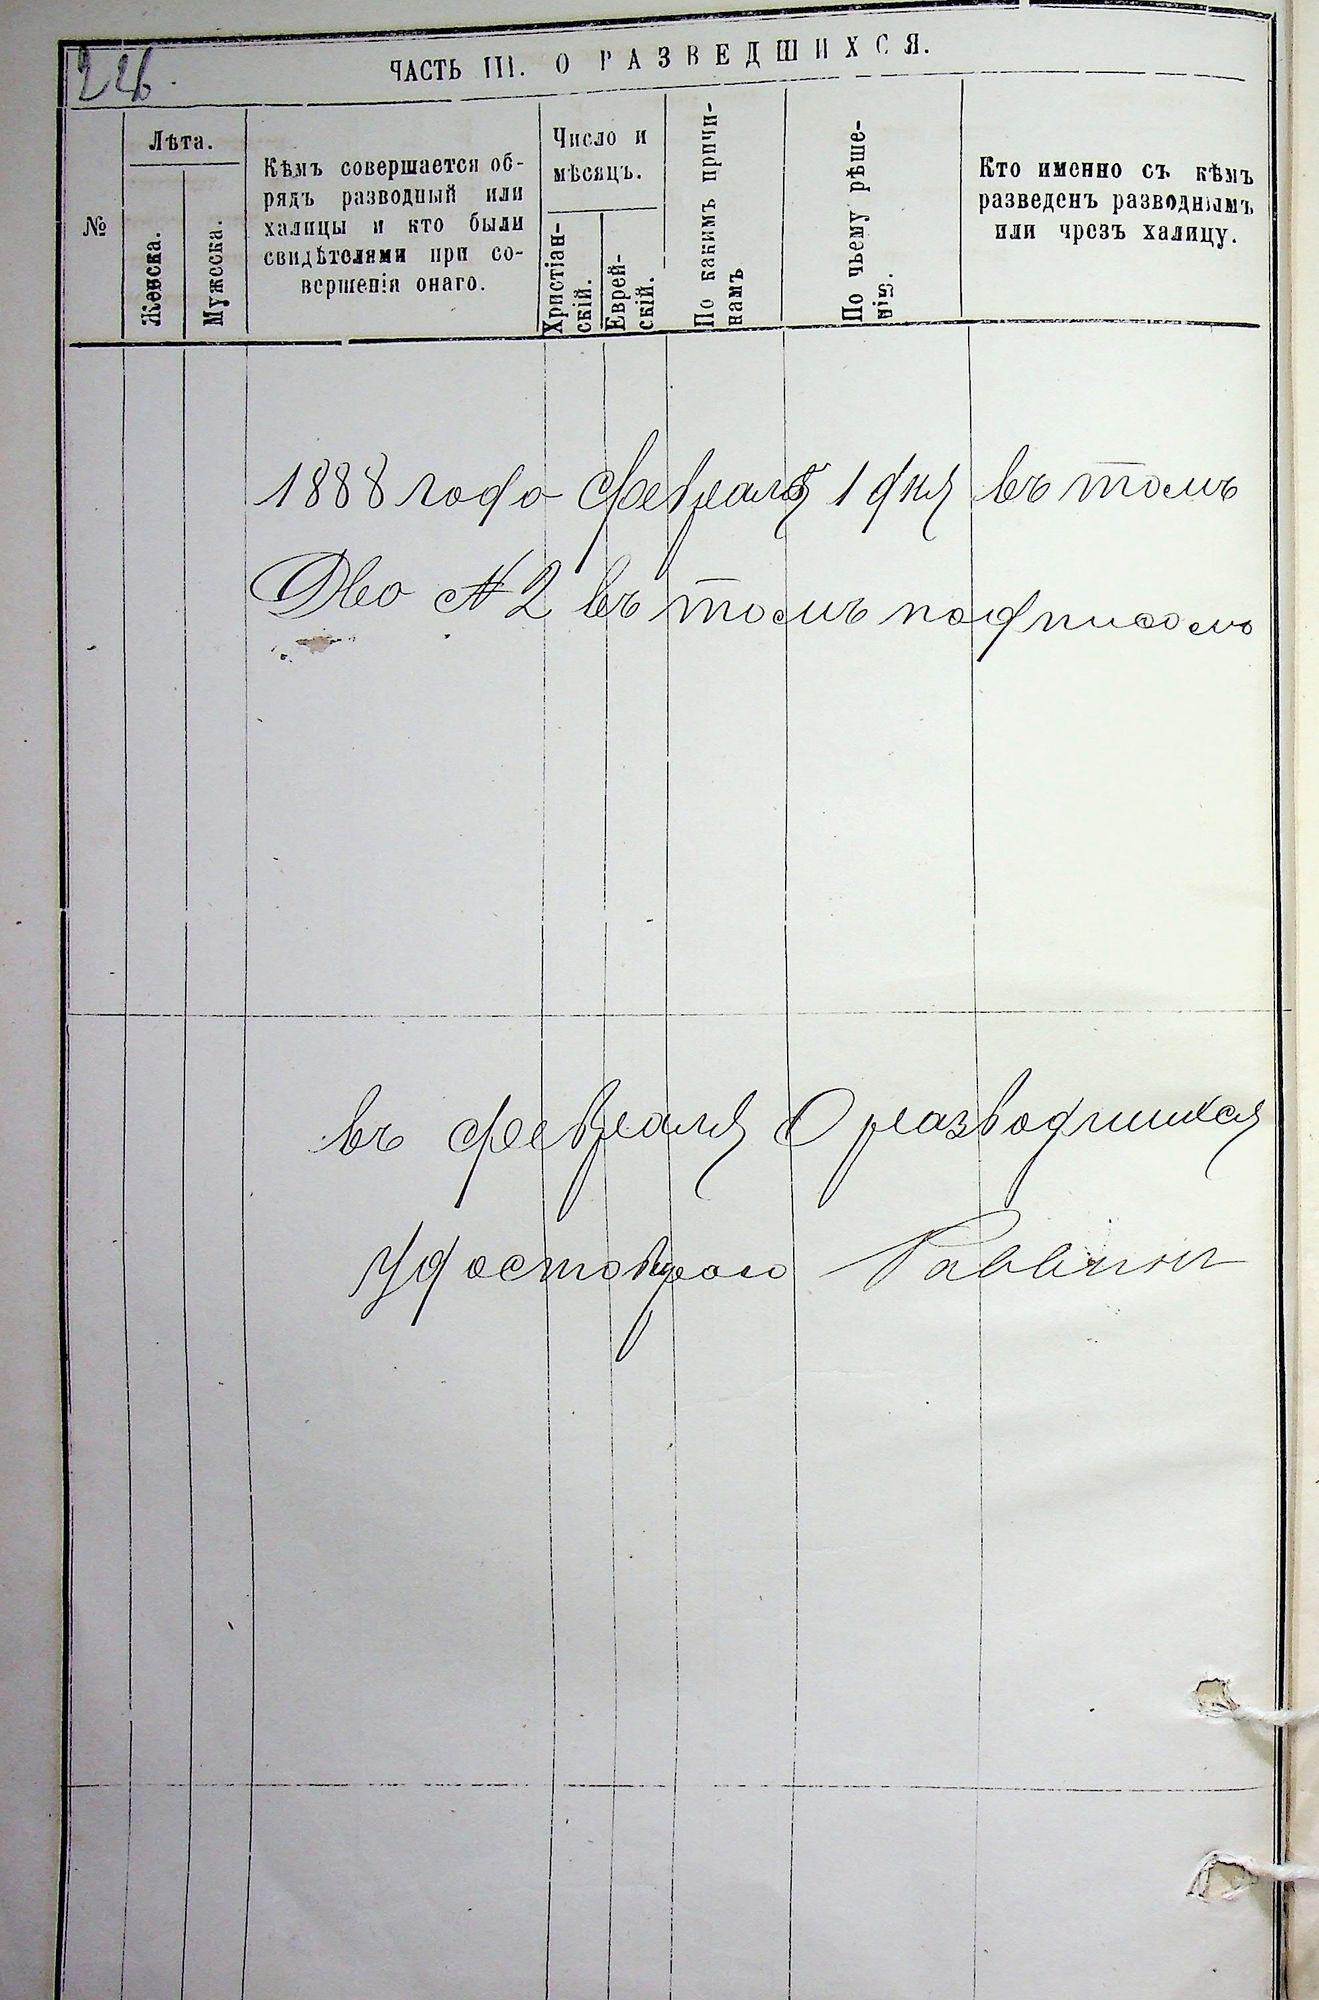 226.
ЧАСТЬ III. О РАЗВЕДШИХСЯ.
№
Лѣта.
Женска.
Мужеска.
Кѣмъ совершается об-
рядъ разводный или
халицы и кто были
свидѣтелями при со-
вершенія онаго.
Число и
мѣсяцъ.
Христіан-
скій.
Еврей-
скій.
По какимъ причи-
намъ
По чьему рѣше-
нію.
Кто именно съ кѣмъ
разведенъ разводнымъ
или чрезъ халицу.
1888 года февраля 1 дня въ томъ
№ 2 въ томъ подписомъ
въ февраля О разводшихся
Раввинъ